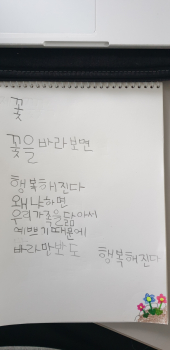 꽃
꽃을 바라보면
행복해진다
왜냐하면
우리가족을 닮아서
예쁘기때문에
바라만봐도 행복해진다